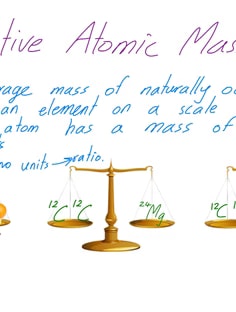 tive Atomic Mas
rage mass of naturally oc
an element on a scale
atom has a mass of
no units → ratio.
¹²C ¹²C ²⁴Mg ¹²C